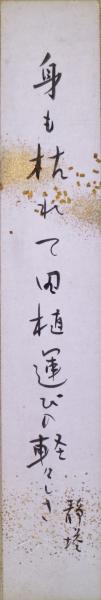 身も枯れて田植運びの軽々しさ
静塔